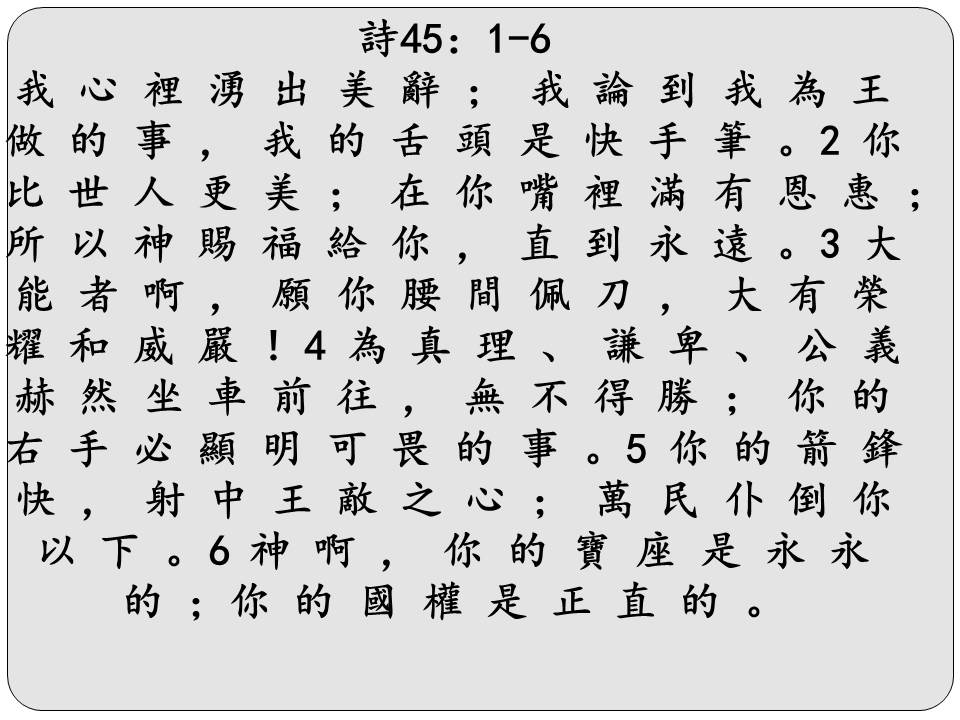 詩45：1-6
我心裡湧出美辭；我論到我為王
做的事，我的舌頭是快手筆。2你
比世人更美；在你嘴裡滿有恩惠；
所以神賜福給你，直到永遠。3大
能者啊，願你腰間佩刀，大有榮
耀和威嚴！4為真理、謙卑、公義
赫然坐車前往，無不得勝；你的
右手必顯明可畏的事。5你的箭鋒
快，射中王敵之心；萬民仆倒你
以下。6神啊，你的寶座是永永
的；你的國權是正直的。